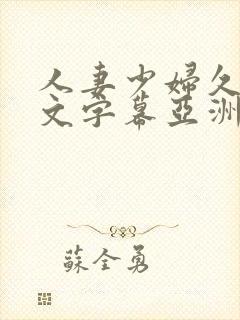 人妻少婦久
文字幕亞洲
蘇全勇